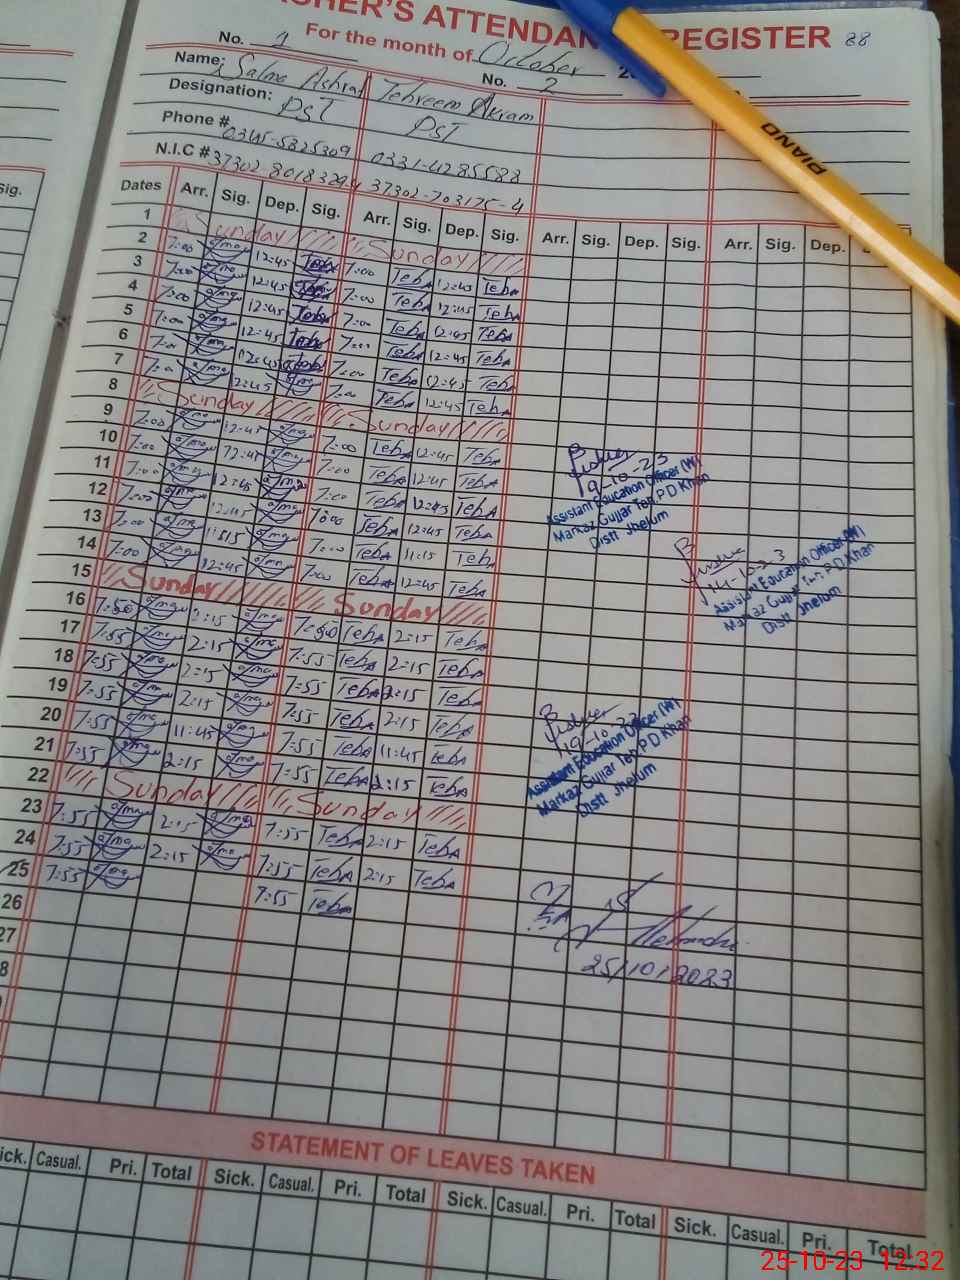 ACHER'S ATTENDAN REGISTER 88
For the month of October 2
No. 1 No. 2
Name: Salma Ashraf Tehreem Akram
Designation: PST PST
Phone # 0345-5825309 0331-4285588
N.I.C # 37302-703175-4
Dates Arr. Sig. Dep. Sig. Arr. Sig. Dep. Sig. Arr. Sig. Dep. Sig. Arr. Sig. Dep.
1 Sunday Sunday
2 7:00 12:45 7:00 TebA 12:45 TebA
3 7:00 12:45 7:00 TebA 12:45 TebA
4 7:00 12:45 7:00 TebA 12:45 TebA
5 7:00 12:45 7:00 TebA 12:45 TebA
6 7:00 12:45 7:00 TebA 12:45 TebA
7 7:00 12:45 7:00 TebA 12:45 TebA
8 Sunday Sunday
9 7:00 12:45 7:00 TebA 12:45 TebA
10 7:00 12:45 7:00 TebA 12:45 TebA
11 7:00 12:45 7:00 TebA 12:45 TebA
12 7:00 12:45 7:00 TebA 12:45 TebA
13 7:00 11:15 7:00 TebA 11:15 TebA
14 7:00 12:45 7:00 TebA 12:45 TebA
15 Sunday Sunday
16 7:50 2:15 7:50 TebA 2:15 TebA
17 7:55 2:15 7:55 TebA 2:15 TebA
18 7:55 2:15 7:55 TebA 2:15 TebA
19 7:55 2:15 7:55 TebA 2:15 TebA
20 7:55 11:45 7:55 TebA 11:45 TebA
21 7:55 2:15 7:55 TebA 2:15 TebA
22 Sunday Sunday
23 7:55 2:15 7:55 TebA 2:15 TebA
24 7:55 2:15 7:55 TebA 2:15 TebA
25 7:55 7:55 TebA
26
27
8
9-10-23
Assistant Education Officer (W)
Markaz Gujjar Teh, P D Khan
Distt Jhelum
14-10-23
Assistant Education Officer (W)
Markaz Gujjar Teh, P D Khan
Distt Jhelum
19-10-23
Assistant Education Officer (W)
Markaz Gujjar Teh, P D Khan
Distt Jhelum
25/10/2023
STATEMENT OF LEAVES TAKEN
ick. Casual. Pri. Total Sick. Casual. Pri. Total Sick. Casual. Pri. Total Sick. Casual. Pri. Total
PIANO
Sig.
25-10-23 12:32